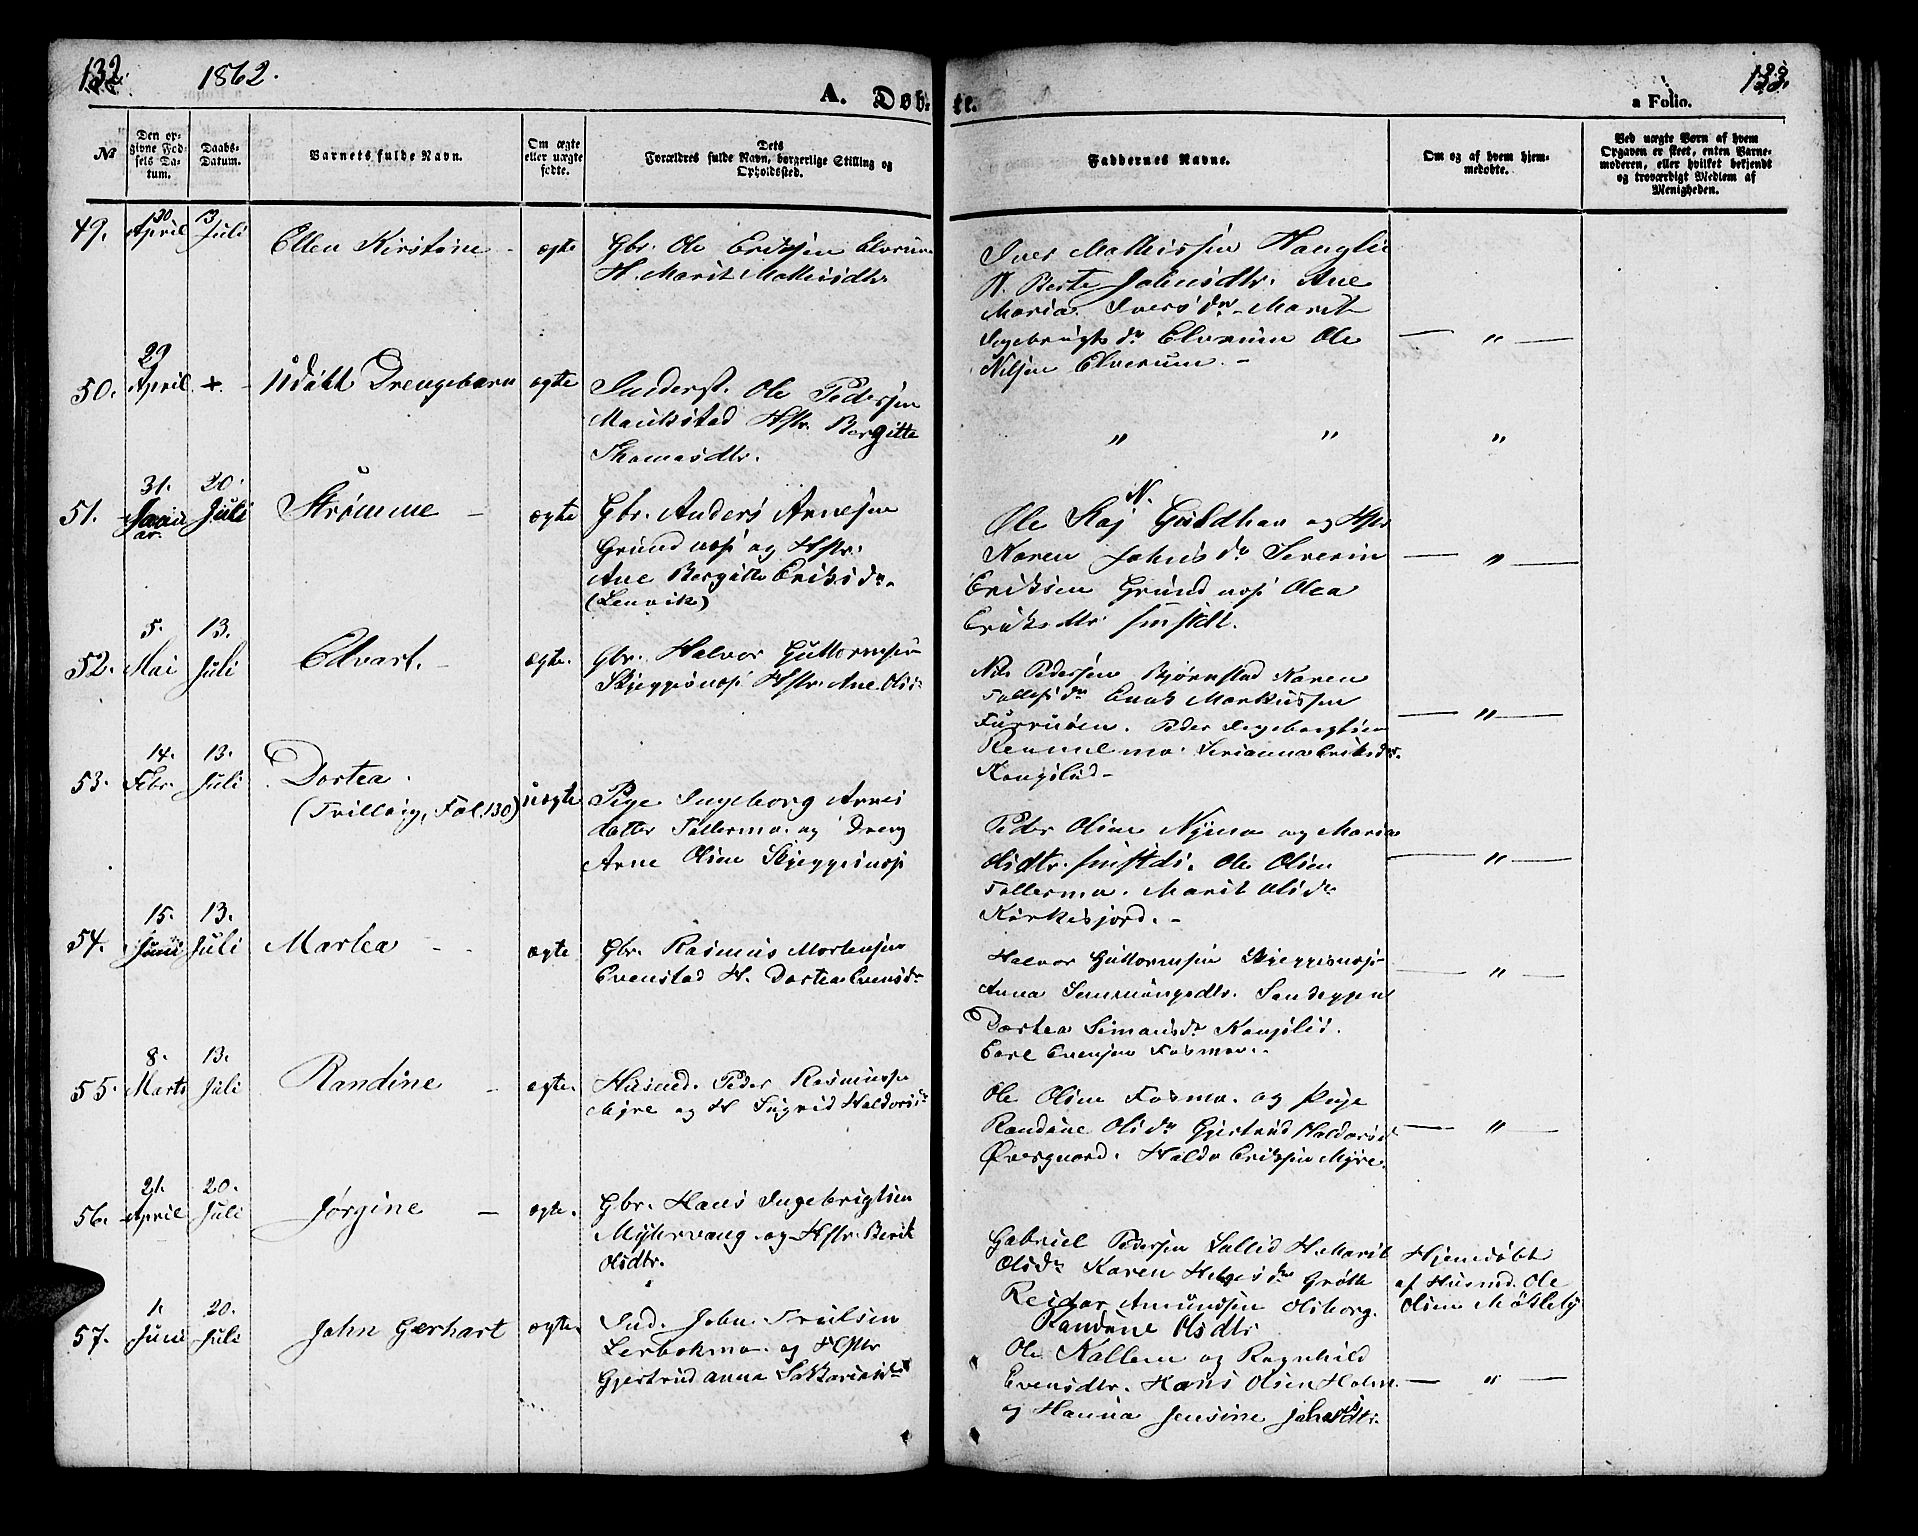 132. 1862.
A. Døb-
te.
a Folio.
133.
No
Den op-
givne Fød-
sels Da-
tum.
Daabs-
Datum.
Barnets fulde Navn.
Om ægte
eller uægte
fødte.
Dets
Forældres fulde Navn, borgerlige Stilling og
Opholdssted.
Faddernes Navne.
Om og af hvem hjem-
medøbte.
Ved uægte Børn af hvem
Opgaven er skeet, enten Barne-
moderen, eller hvilket bekjendt
og troværdigt Medlem af
Menigheden.
49. 30 April 13 Juli Ellen Kirstine - ægte
Gbr. Ole Eriksen Elverum
H. Marit Mathisdtr.
Iver Mathissen Kongslie
H. Berte Johnsdtr. Ane
Maria Iversdr. Marit
Ingebrigtsdr Elverum Ole
Nilsen Elverum. -
— " —
50. 29 April + - Udøbt Drengebarn ægte
Inderst. Ole Pedersen
Mauksstad Hstr. Bergitte
Thomasdtr.
" " "
51. 31. Januar 20. Juli Strømme - ægte
Gbr. Anders Arnesen
Grundnæs og Hstr.
Ane Bergitte Eriksdr.
(Lenvik)
N.
Ole Guldhav og Hstr
Karen Johnsdr Severin
Eriksen Grundnæs Olea
Eriksdtr
— " —
52. 5. Mai 13. Juli Edvart. - ægte.
Gbr. Halvor Guttormsen
Skjeggesnæs Hstr. Ane Olsd:
Nils Pedersen Bjørnstad Karen
Tollefsdr Enok Markussen
Furruøen. Peder Ingebrigtsen
Rennelmo. Serianna Eriksdr.
Kongslid -
— " —
53. 14. Febr. 13. Juli Dortea.
(Tvilling, Fol. 130) uægte
Pige Ingeborg Arnes
datter Tollermo. og Dreng
Arne Olsen Skjeggesnæs
Peder Olsen Nymo og Maria
Olsdtr. Ole Olsen
Tollermo. Marit Olsdr
Kirkesjord. -
— " —
54. 15. Juni 13. Juli Martea - - ægte
Gbr. Rasmus Mortensen
Evenstad H. Dortea Evensdr
Halvor Guttormsen Skjeggesnæs
Anna Sandeggen
Dortea Simonsdr Kongslid.
Carl Evensen Fosmo.
— " —
55. 8. Marts 13. Juli Randine - ægte.
Husmd. Peder Rasmussen
Myre og H Ingrid Haldorsdr
Ole Olsen Fosmo. og Pige
Randine Olsdr Gjertrud Haldorsdr
Øvergaard. Haldo Eriksen Myre.
— " —
56. 21. April 20. Juli Jørgine - ægte.
Gbr. Hans Ingebrigtsen
Myhrvang og Hstr. Berit
Olsdtr.
Gabriel Pedersen Sollid H. Marit
Olsdr Karen Helgesdr Grøtte
Reidar Amundsen Olsborg.
Randine Olsdtr
Hjemdøbt
af Husmd. Ole
Olsen Møkleby
57. 1. Juni 20. Juli John Gerhart ægte.
Ind. John Troelsen
Lerbokmo og Hstr
Gjertrud Anna Sakkariasdr
Ole Kallem og Ragnhild
Evensdtr. Hans Olsen Holm
og Hanna Jensine Johansdtr.
— " —